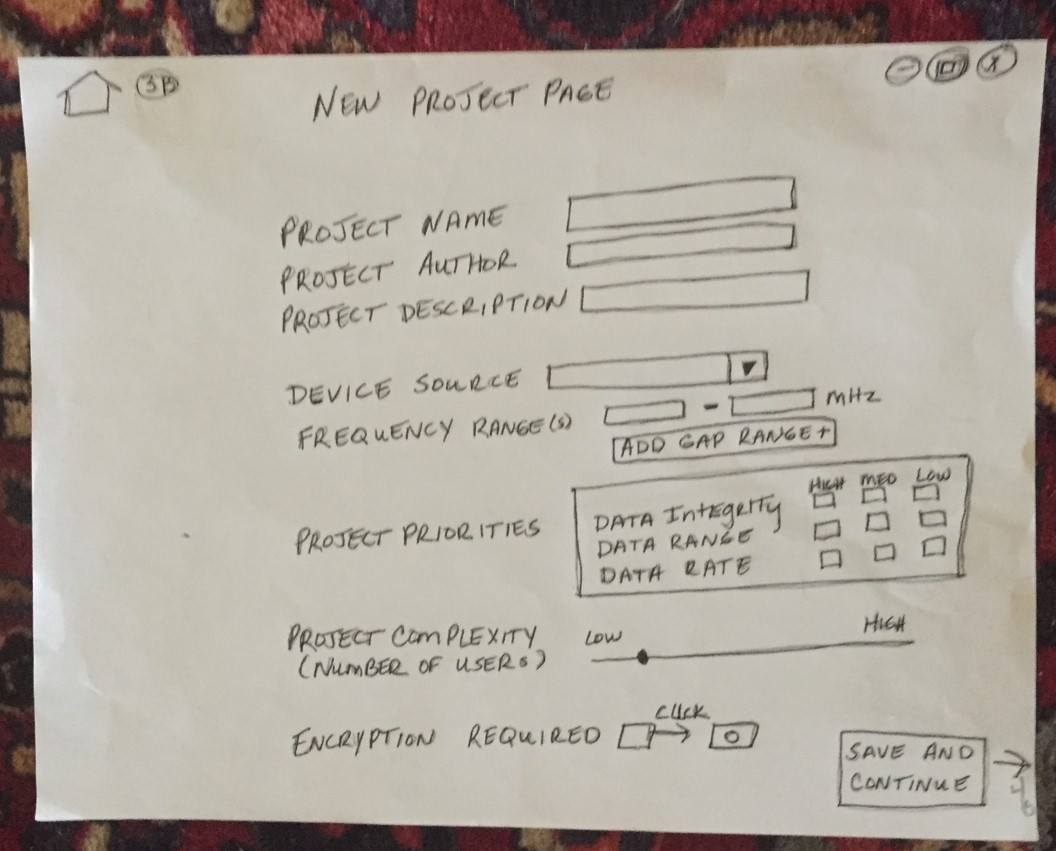 3B
NEW PROJECT PAGE
PROJECT NAME
PROJECT AUTHOR
PROJECT DESCRIPTION
DEVICE SOURCE
FREQUENCY RANGE(S) - MHz
ADD GAP RANGE +
HIGH MED LOW
PROJECT PRIORITIES
DATA IntEGRITY
DATA RANGE
DATA RATE
PROJECT COMPLEXITY
(NUMBER OF USERS)
LOW HIGH
ENCRYPTION REQUIRED
CLICK
SAVE AND
CONTINUE